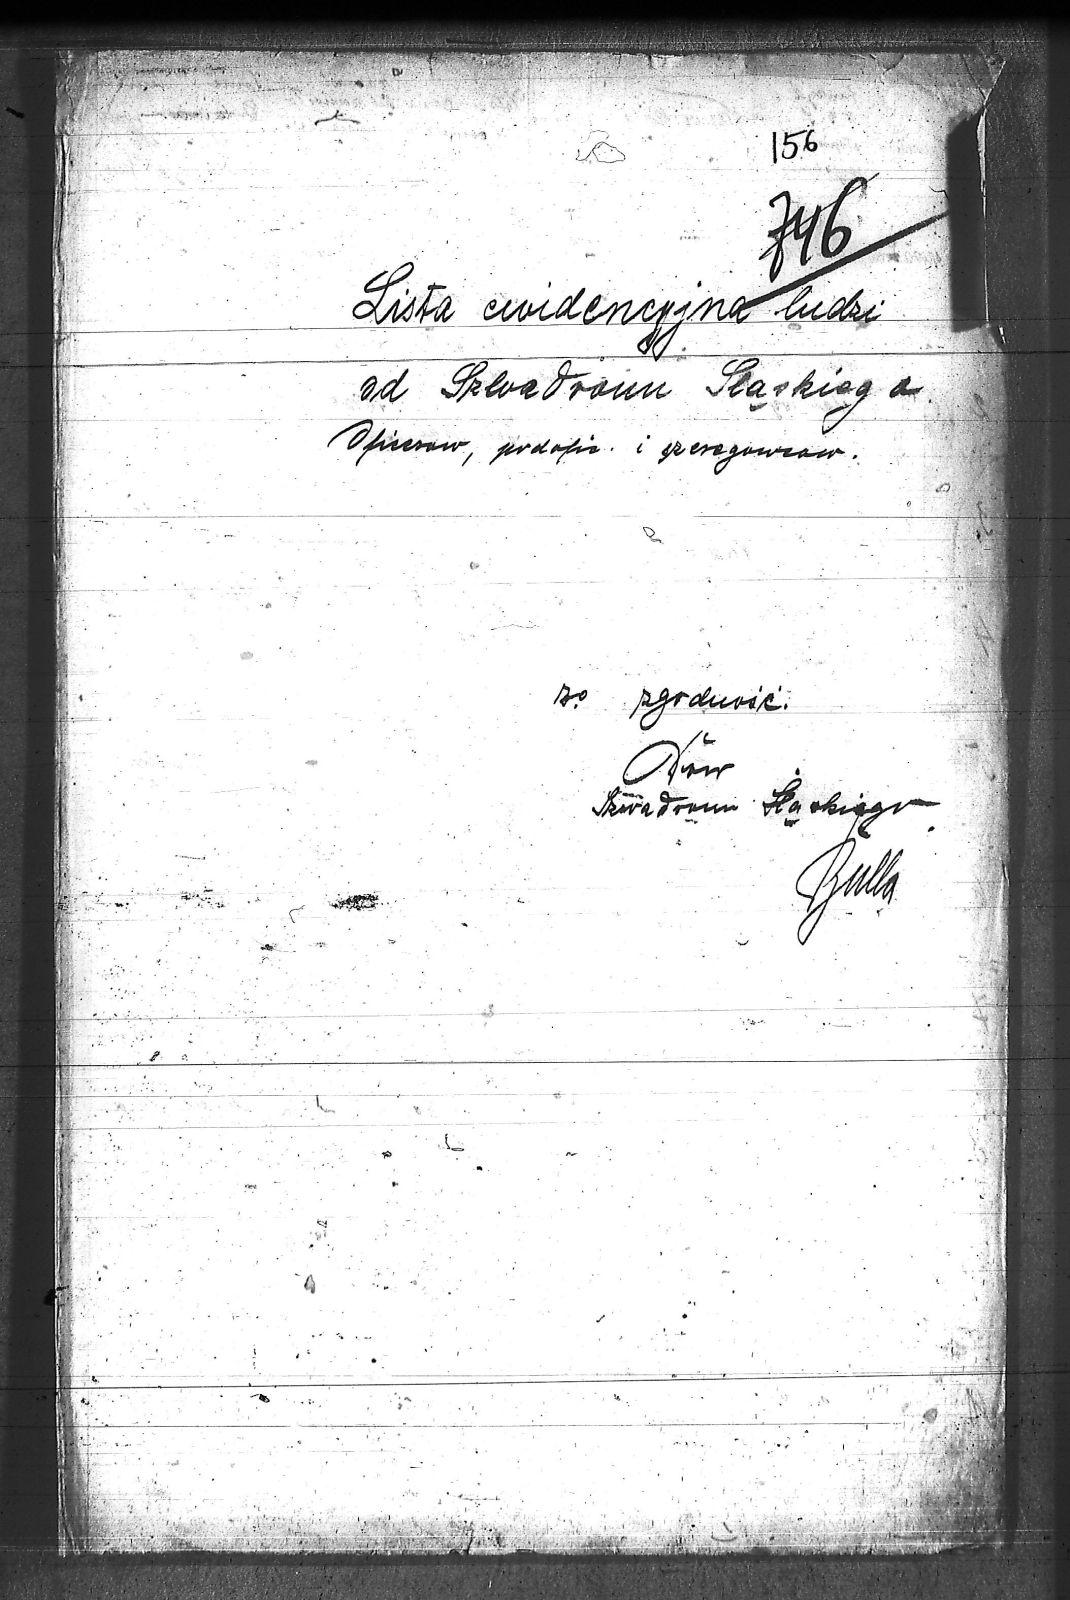 156
746
Lista ewidencyjna ludzi
od Szwadronu Śląskiego
Oficerow, podofic. i szeregowcow.
za zgodność.
Dów
Szwadronu Śląskiego
Bulla